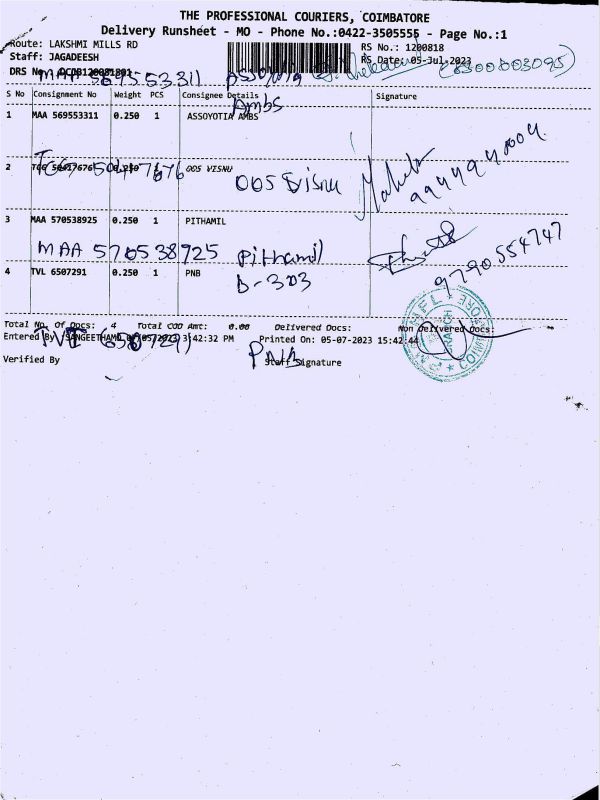 THE PROFESSIONAL COURIERS, COIMBATORE
Delivery Runsheet - MO - Phone No.:0422-3505555 - Page No.:1
Route: LAKSHMI MILLS RD
RS No.: 1200818
Staff: JAGADEESH
RS Date: 05-Jul-2023
(8300003095)
DRS No.
MAA 569553311
S No Consignment No Weight PCS Consignee Details Signature
Ambs
1 MAA 569553311 0.250 1 ASSOYOTIA AMBS
2 0.250 1 OOS VISNU
OOS Visnu
9944940004
3 MAA 570538925 0.250 1 PITHAMIL
MAA 570538925 Pithamil
9790554747
4 TVL 6507291 0.250 1 PNB
D-303
Total No. Of Docs: 4 Total COD Amt: 0.00 Delivered Docs: Non Delivered Docs:
Entered By SANGEETHAMO 3:42:32 PM Printed On: 05-07-2023 15:42:44
PNB
Verified By Staff Signature